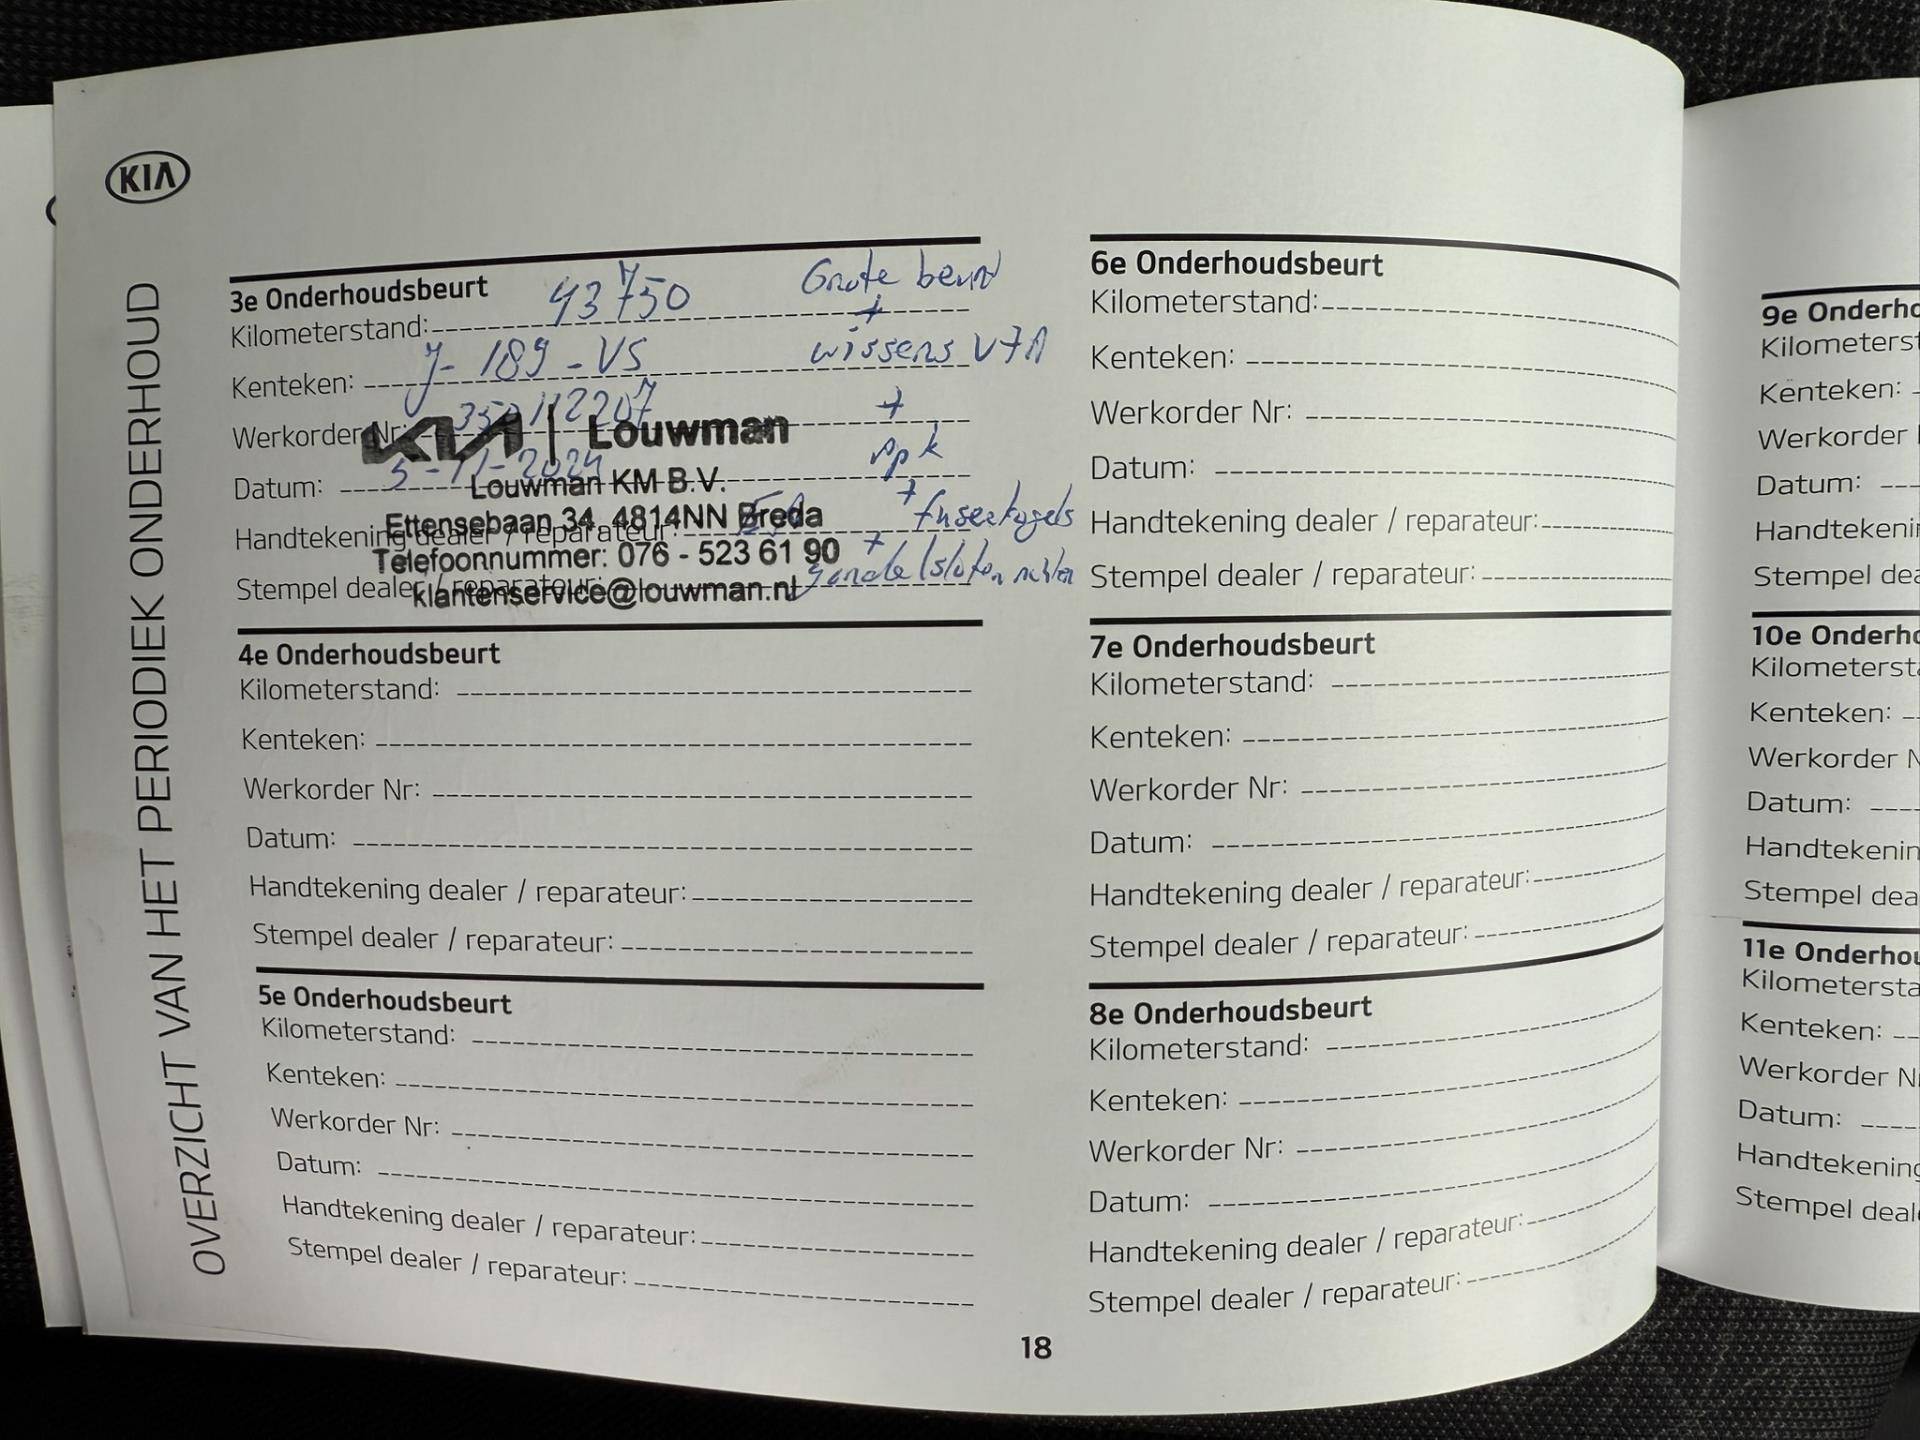 KIA
OVERZICHT VAN HET PERIODIEK ONDERHOUD
3e Onderhoudsbeurt
Kilometerstand: 43750
Kenteken: J-189-VS
Werkorder Nr:
Datum: 5-11-2024
Handtekening dealer / reparateur:
Stempel dealer / reparateur:
Grote beurt
+
wissers V+A
+
apk
+ fuseekogels
+
KIA | Louwman
Louwman KM B.V.
Ettensebaan 34, 4814NN Breda
Telefoonnummer: 076 - 523 61 90
klantenservice@louwman.nl
4e Onderhoudsbeurt
Kilometerstand:
Kenteken:
Werkorder Nr:
Datum:
Handtekening dealer / reparateur:
Stempel dealer / reparateur:
5e Onderhoudsbeurt
Kilometerstand:
Kenteken:
Werkorder Nr:
Datum:
Handtekening dealer / reparateur:
Stempel dealer / reparateur:
6e Onderhoudsbeurt
Kilometerstand:
Kenteken:
Werkorder Nr:
Datum:
Handtekening dealer / reparateur:
Stempel dealer / reparateur:
7e Onderhoudsbeurt
Kilometerstand:
Kenteken:
Werkorder Nr:
Datum:
Handtekening dealer / reparateur:
Stempel dealer / reparateur:
8e Onderhoudsbeurt
Kilometerstand:
Kenteken:
Werkorder Nr:
Datum:
Handtekening dealer / reparateur:
Stempel dealer / reparateur:
18
9e Onderho
Kilometerst
Kenteken:
Werkorder
Datum:
Handtekenin
Stempel dea
10e Onderho
Kilometerst
Kenteken:
Werkorder N
Datum:
Handtekenin
Stempel dea
11e Onderhou
Kilometersta
Kenteken:
Werkorder N
Datum:
Handtekening
Stempel deal